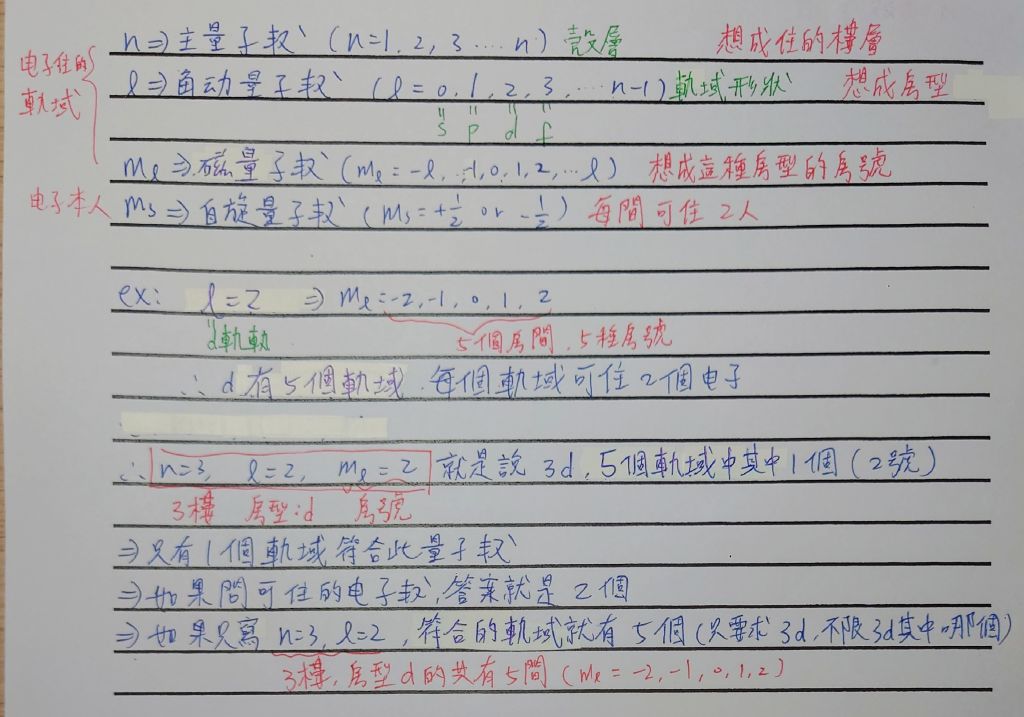 n⇒主量子数 (n=1, 2, 3 ‥‥ n) 殼層 想成住的樓層
电子住的軌域
ℓ⇒角动量子数 (ℓ=0, 1, 2, 3, ‥‥ n-1) 軌域形狀 想成房型
s p d f
mℓ⇒磁量子数 (mℓ=-ℓ, ‥-1, 0, 1, 2, ‥ℓ) 想成這種房型的房號
电子本人 ms⇒自旋量子数 (ms=+1/2 or -1/2) 每間可住 2人
ex: ℓ=2 ⇒ mℓ=-2, -1, 0, 1, 2
d軌軌 5個房間, 5種房號
∴ d有5個軌域, 每個軌域可住2個电子
∴ n=3, ℓ=2, mℓ=2 就是說 3d, 5個軌域中其中1個 (2號)
3樓 房型:d 房號
⇒只有1個軌域符合此量子数
⇒如果問可住的电子数, 答案就是2個
⇒如果只寫 n=3, ℓ=2, 符合的軌域就有5個 (只要求3d, 不限3d其中哪個)
3樓, 房型d的共有5間 (mℓ=-2, -1, 0, 1, 2)